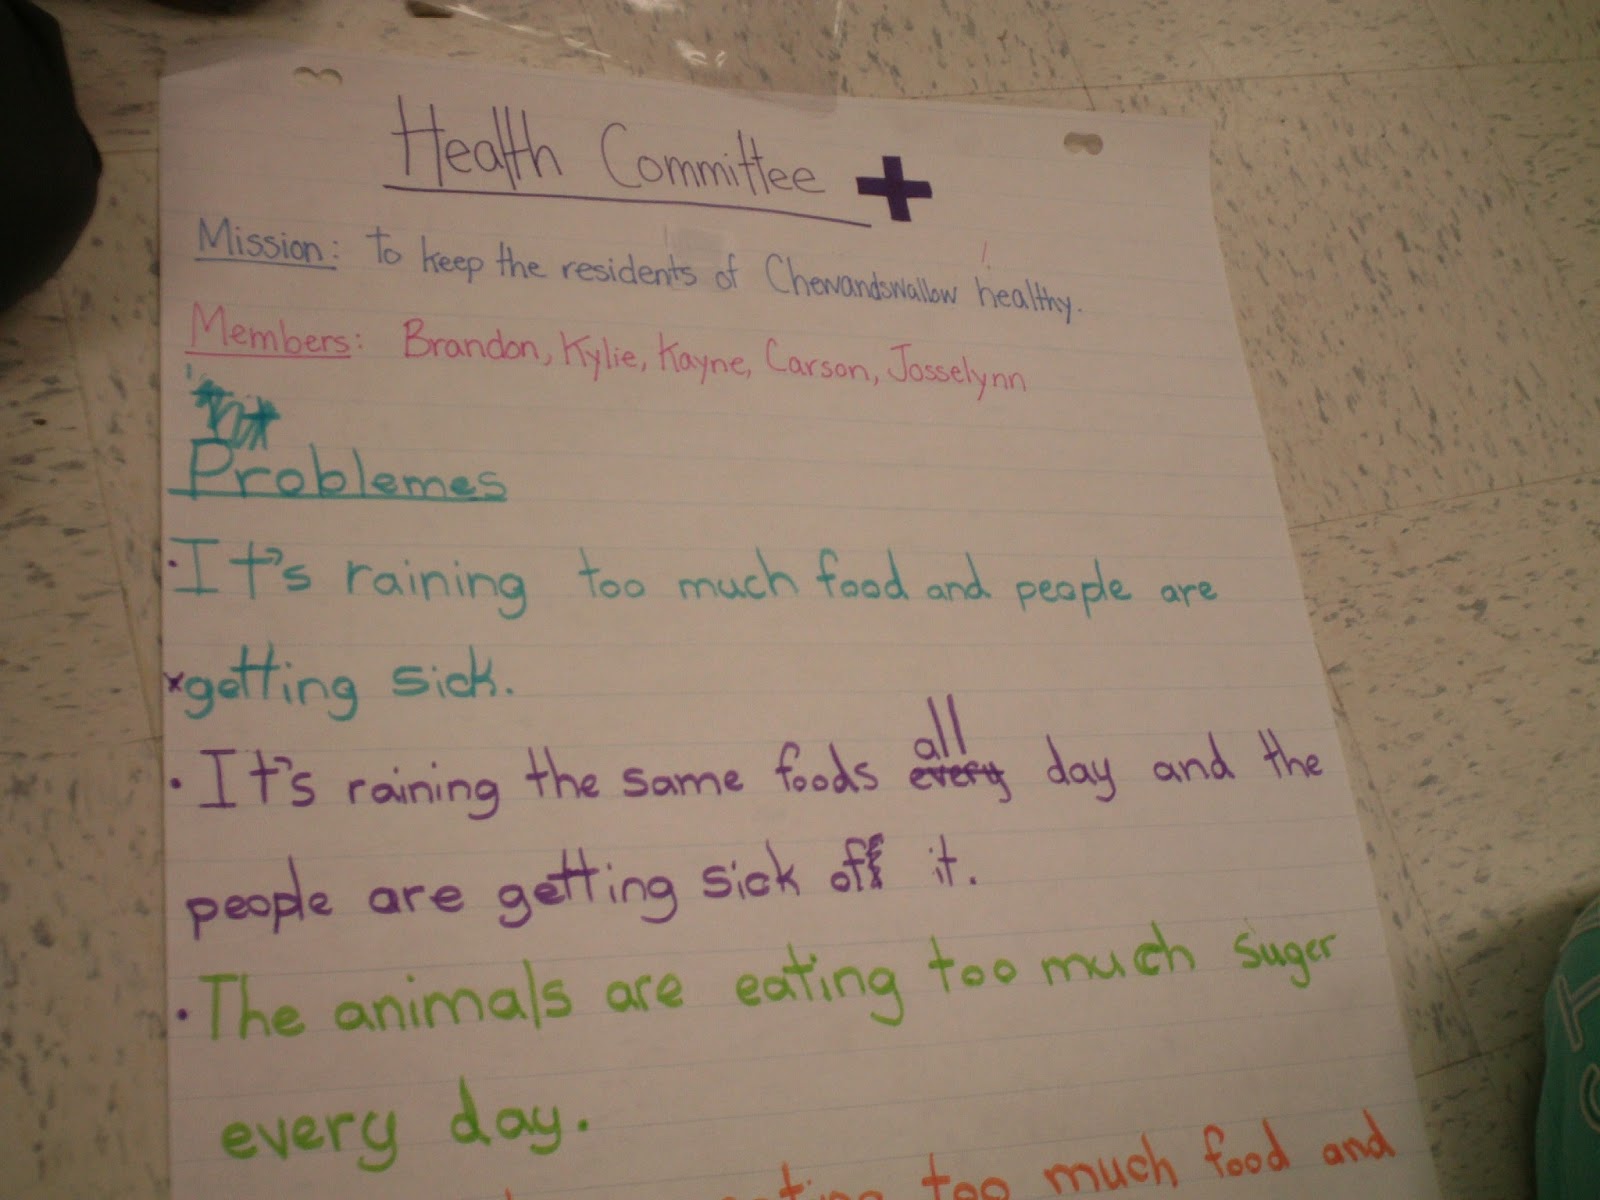 Health Committee
Mission: to keep the residents of Chewandswallow healthy.
Members: Brandon, Kylie, Kayne, Carson, Josselynn
Problemes
· It's raining too much food and people are
getting sick.
· It's raining the same foods all every day and the
people are getting sick off it.
· The animals are eating too much suger
every day.
too much food and